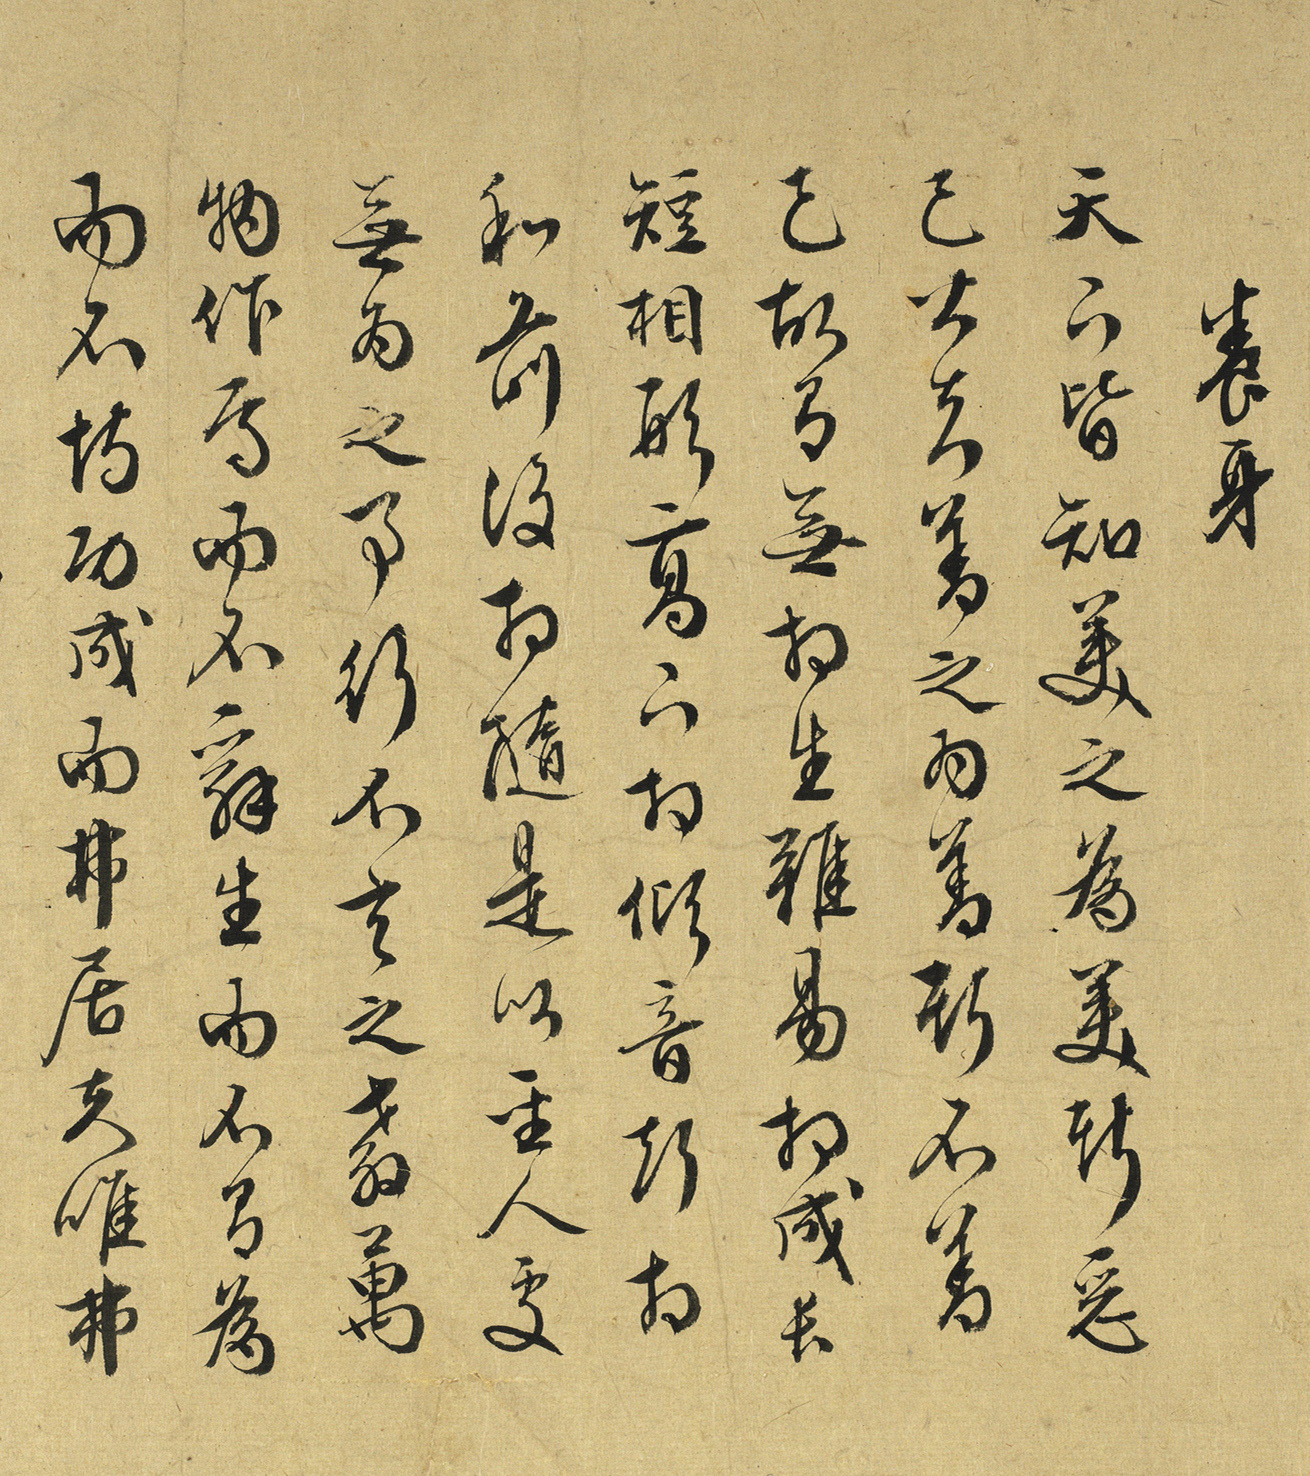 養身
天下皆知美之為美斯惡
已皆知善之為善斯不善
已故有無相生難易相成長
短相形高下相傾音聲相
和前後相隨是以聖人處
無為之事行不言之教萬
物作焉而不辭生而不有為
而不恃功成而弗居夫唯弗